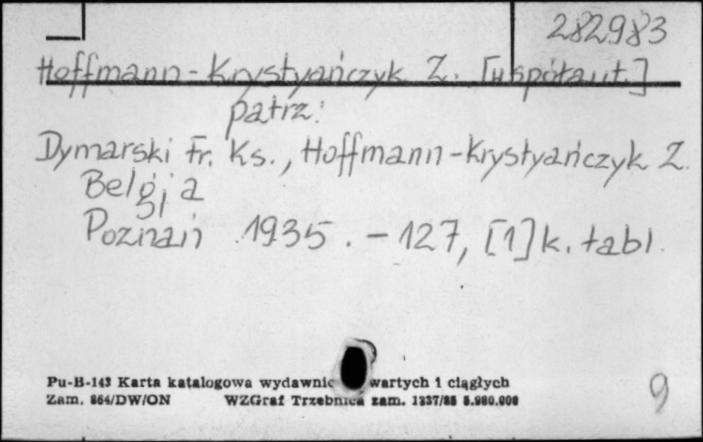 282983
Hoffmann-Krystyańczyk Z. [współaut.]
patrz:
Dymarski Fr. Ks., Hoffmann-Krystyańczyk Z.
Belgja
Poznań 1935. - 127, [1] k. tabl.
Pu-B-143 Karta katalogowa wydawnic wartych i ciągłych
Zam. 864/DW/ON WZGraf Trzebnica zam. 1337/88 5.000.000
9